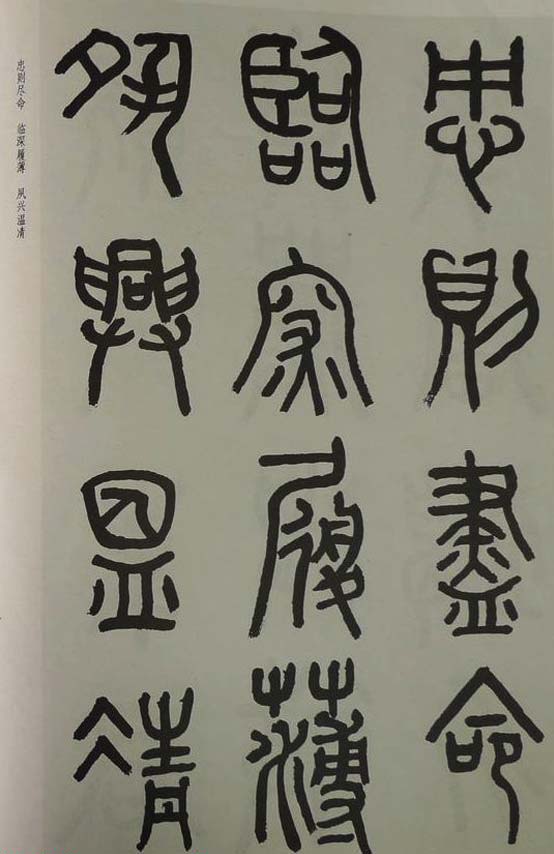 忠則盡命
臨罙履薄
夙興昷凊
忠则尽命 临深履薄 夙兴温凊